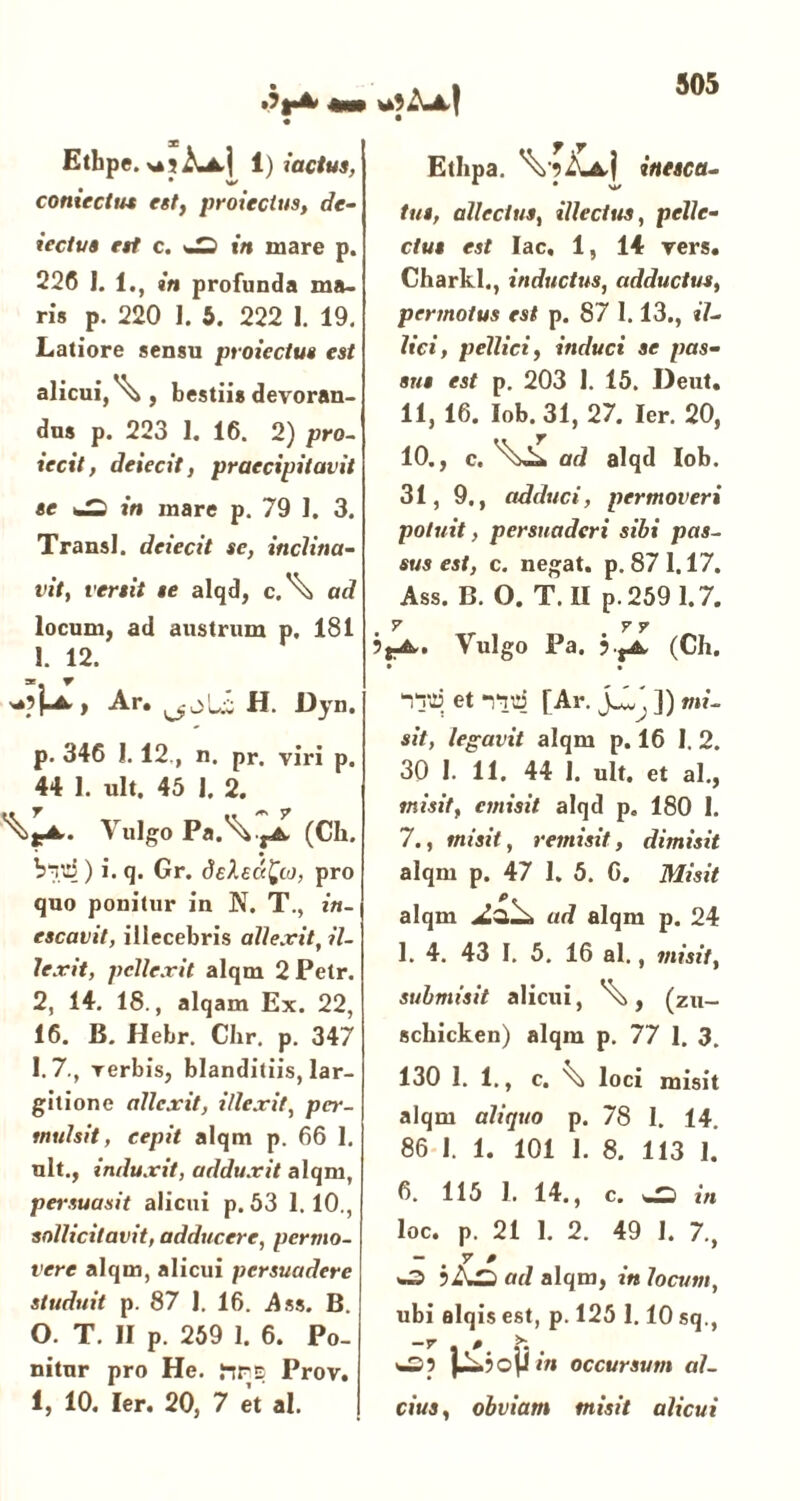 .ܫܕܪ — ܐܫܬܕܝ
505
Ethpe. ܐܫܬܕܝ 1) iactus,
coniectus est, proiectus, de-
iectus est c. ܒ in mare p.
226 l. 1., in profunda ma-
ris p. 220 l. 5. 222 l. 19.
Latiore sensu proiectus est
alicui, ܠ , bestiis devoran-
dus p. 223 l. 16. 2) pro-
iecit, deiecit, praecipitavit
se ܒ in mare p. 79 l. 3.
Transl. deiecit se, inclina-
vit, versit se alqd, c. ܠ ad
locum, ad austrum p. 181
l. 12.
ܫܐܕܝ, Ar. شادي H. Dyn.
p. 346 l. 12., n. pr. viri p.
44 l. ult. 45 l. 2.
ܫܕܠ. Vulgo Pa. ܫܕܠ (Ch.
שדל) i. q. Gr. δελεάζω, pro
quo ponitur in N. T., in-
escavit, illecebris allexit, il-
lexit, pellexit alqm 2 Petr.
2, 14. 18., alqam Ex. 22,
16. B. Hebr. Chr. p. 347
l. 7., verbis, blanditiis, lar-
gitione allexit, illexit, per-
mulsit, cepit alqm p. 66 l.
ult., induxit, adduxit alqm,
persuasit alicui p. 53 l. 10.,
sollicitavit, adducere, permo-
vere alqm, alicui persuadere
studuit p. 87 l. 16. Ass. B.
O. T. II p. 259 l. 6. Po-
nitur pro He. פתה Prov.
1, 10. Ier. 20, 7 et al.
Ethpa. ܐܫܬܕܠ inesca-
tus, allectus, illectus, pelle-
ctus est Iac. 1, 14 vers.
Charkl., inductus, adductus,
permotus est p. 87 l. 13., il-
lici, pellici, induci se pas-
sus est p. 203 l. 15. Deut.
11, 16. Iob. 31, 27. Ier. 20,
10., c. ܥܠ ad alqd Iob.
31, 9., adduci, permoveri
potuit, persuaderi sibi pas-
sus est, c. negat. p. 87 l. 17.
Ass. B. O. T. II p. 259 l. 7.
ܫܕܪ. Vulgo Pa. ܫܕܪ (Ch.
שדר et שדר [Ar. ]) mi-
sit, legavit alqm p. 16 l. 2.
30 l. 11. 44 l. ult. et al.,
misit, emisit alqd p. 180 l.
7., misit, remisit, dimisit
alqm p. 47 l. 5. 6. Misit
alqm ܠܘܬ ad alqm p. 24
l. 4. 43 l. 5. 16 al., misit,
submisit alicui, ܠ, (zu-
schicken) alqm p. 77 l. 3.
130 l. 1., c. ܠ loci misit
alqm aliquo p. 78 l. 14.
86 l. 1. 101 l. 8. 113 l.
6. 115 l. 14., c. ܒ in
loc. p. 21 l. 2. 49 l. 7.,
ܒܬܪ ܒ ad alqm, in locum,
ubi alqis est, p. 125 l. 10 sq.,
in occursum al-
cius, obviam misit alicui